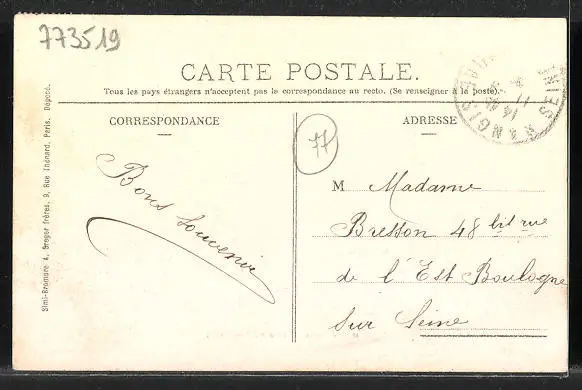 773519
CARTE POSTALE.
Tous les pays étrangers n'acceptent pas la correspondance au recto. (Se renseigner à la poste).
CORRESPONDANCE
ADRESSE
77
Bons Souvenir
M Madame
Bresson 48 bis rue
de l'Est Boulogne
sur Seine
Simi-Bromure A. Breger frères, 9, Rue Thénard, Paris. Déposé.